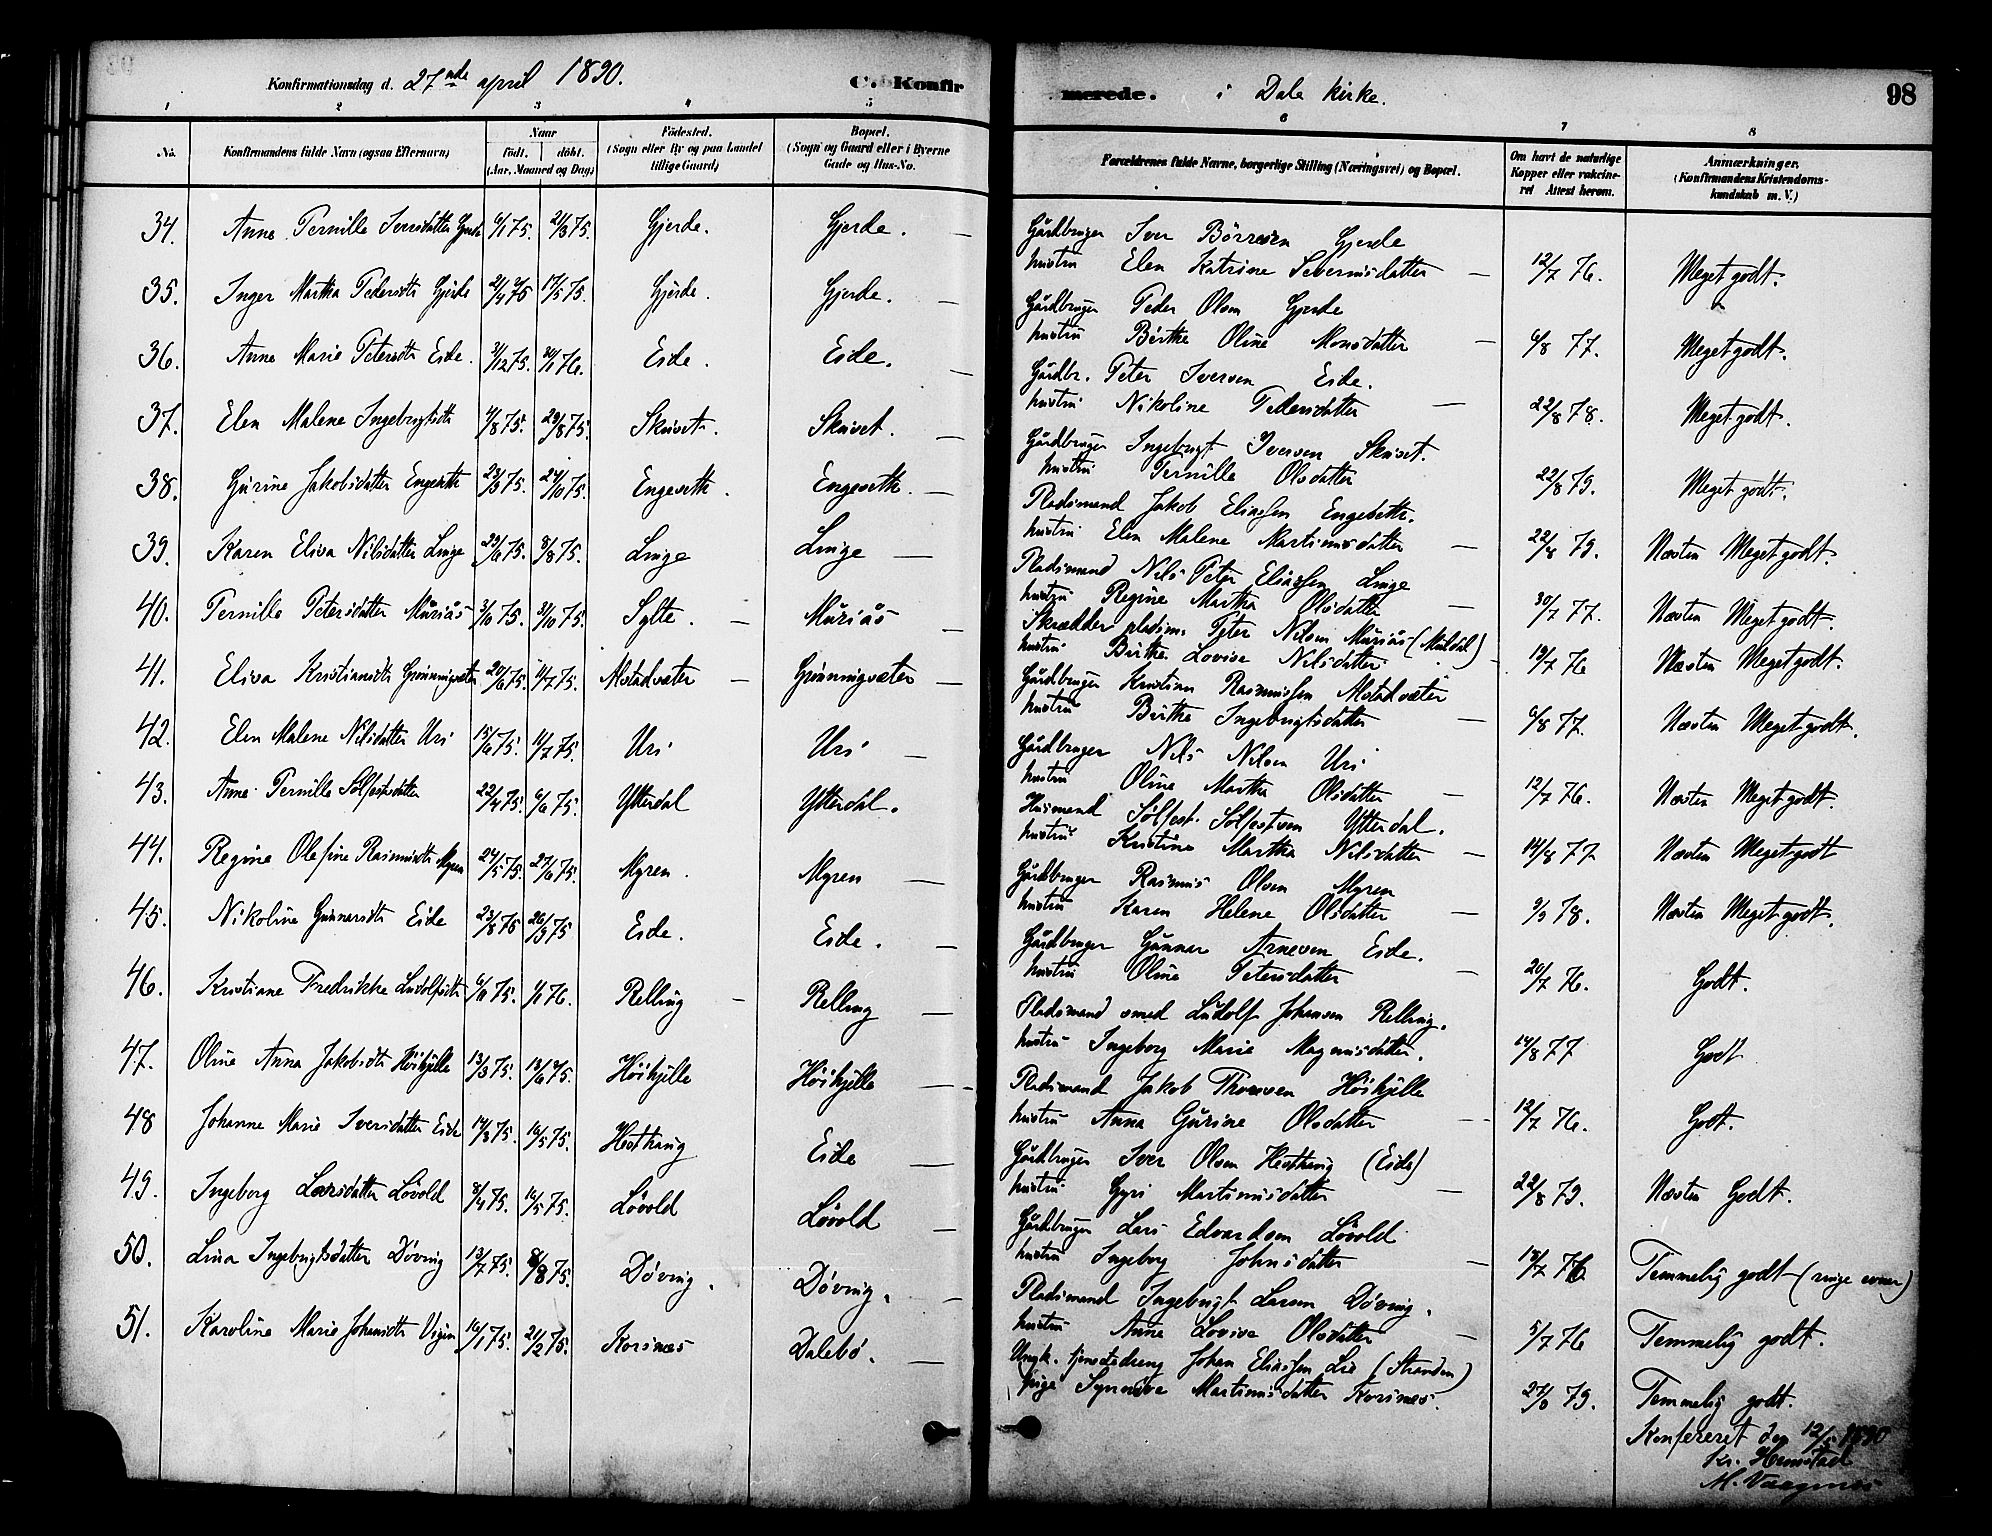 Konfirmationsdag d. 27nde april 1890. C. Konfir
merede. i Dale kirke. 98
1 2 3 4 5 6 7 8
No. Konfirmandens fulde Navn (ogsaa Efternavn) Naar født. døbt. (Aar, Maaned og Dag) Födested. (Sogn eller By og paa Landet tillige Gaard) Bopæl. (Sogn og Gaard eller i Byerne Gade og Hus-No. Forældrenes fulde Navne, borgerlige Stilling (Næringsvei) og Bopæl. Om havt de naturlige Kopper eller vaksineret Attest herom. Anmærkninger. (Konfirmandens Kristendomskundskab m. V.)
34. Anne Pernille Iversdatter Gjerde 6/1 75. 21/3 75. Gjerde. Gjerde. —
Gårdbruger Iver Børresen Gjerde
hustru Elen Katrine Severinsdatter — 12/7 76. Meget godt.
35. Inger Martha Pedersdtr Gjerde 21/4 75 17/5 75. Gjerde. Gjerde. —
Gårdbruger Peder Olsen Gjerde
hustru Birthe Oline Monsdatter — 6/8 77. Meget godt.
36. Anne Marie Petersdtr Eide. 31/12 75. 1 76. Eide. Eide. —
Gårdbr. Peter Iversen Eide.
hustru Nikoline Pedersdatter — 22/8 78. Meget godt.
37. Elen Malene Ingebrigtsdtr 7/8 75. 29/8 75. Skuset. Skuset. —
Gårdbruger Ingebrigt Iversen Skuset.
hustru Pernille Olsdatter 22/8 79. Meget godt.
38. Gurine Jakobsdatter Engeseth 23/9 75. 24/10 75. Engeseth. Engeseth. —
Pladsmand Jakob Eliassen Engeseth.
hustru Elen Malene Martinusdatter — 22/8 79. Næsten Meget godt.
39. Karen Elisa Nilsdatter Linge 29/6 75. 8/8 75. Linge Linge —
Pladsmand Nils Peter Eliassen Linge
hustru Regine Martha Olsdatter — 30/7 77. Næsten Meget godt.
40. Pernille Petersdatter Muriås 3/10 75. 31/10 75. Sylte. — Muriås —
Skrædder pladsm. Peter Nilsen Muriås (Muldal)
hustru Birthe Lovise Nilsdatter — 19/7 76 Næsten Meget godt.
41. Elisa Kristiansdtr Grønningsæter 20/6 75. 11/7 75. Alstadsæter — Grønningsæter —
Gårdbruger Kristian Rasmussen Alstadsæter
hustru Birthe Ingebrigtsdatter — 6/8 77. Næsten Meget godt.
42. Elen Malene Nilsdatter Uri 15/6 75. 11/7 75. Uri Uri —
Gårdbruger Nils Nilsen Uri
hustru Oline Martha Olsdatter — 12/7 76. Næsten Meget godt.
43. Anne Pernille Sølfestsdatter 22/4 75. 6/6 75. Ytterdal Ytterdal.
Husmand Sølfest Sølfestsen Ytterdal.
hustru Kristine Martha Nilsdatter — 14/8 77 Næsten Meget godt
44. Regine Olefine Rasmusdtr Myren 24/5 75. 27/6 75. Myren. Myren —
Gårdbruger Rasmus Olsen Myren
hustru Karen Helene Olsdatter — 9/9 78. Næsten Meget godt.
45. Nikoline Gunnarsdtr Eide 23/8 75 26/9 75 Eide. Eide. —
Gårdbruger Gunnar Arnesen Eide.
hustru Oline Petersdatter — 20/7 76. Godt.
46. Kristiane Fredrikke Ludolfsdtr 6/11 75. 1/1 76. Relling — Relling —
Pladsmand smed Ludolf Johansen Relling.
hustru Ingeborg Marie Magnusdatter. 14/8 77 Godt
47. Oline Anna Jakobsdtr Høihjelle 13/3 75. 13/6 75. Høihjelle Høihjelle —
Pladsmand Jakob Thoresen Høihjelle
hustru Anna Gurine Olsdatter — 12/7 76. Godt.
48 Johanne Marie Iversdatter Eide 14/3 75. 16/5 75. Hesthaug Eide —
Gårdbruger Iver Olsen Hesthaug (Eide)
hustru Gyri Martinusdatter — 22/8 79. Næsten Godt.
49. Ingeborg Larsdatter Løvold 8/4 75. 16/5 75. Løvold Løvold —
Gårdbruger Lars Edvardsen Løvold
hustru Ingeborg Johnsdatter — 13/7 76 Temmelig godt (ringe evner)
50. Lina Ingebrigtsdatter Døving 13/7 75. 8/8 75. Døving. Døving. —
Pladsmand Ingebrigt Larsen Døving.
hustru Anne Lovise Olsdatter — 5/7 76 Temmelig godt.
51. Karoline Marie Johansdtr 16/1 75. 21/2 75. Korsnes Dalebø. —
Ungk. tjenestedreng Johan Eliassen Lie (Stranden)
(pige Synnøve Martinusdatter Korsnes. 79. Temmelig godt.
Konfereret den 12/5 1890
Kr. Hemstad